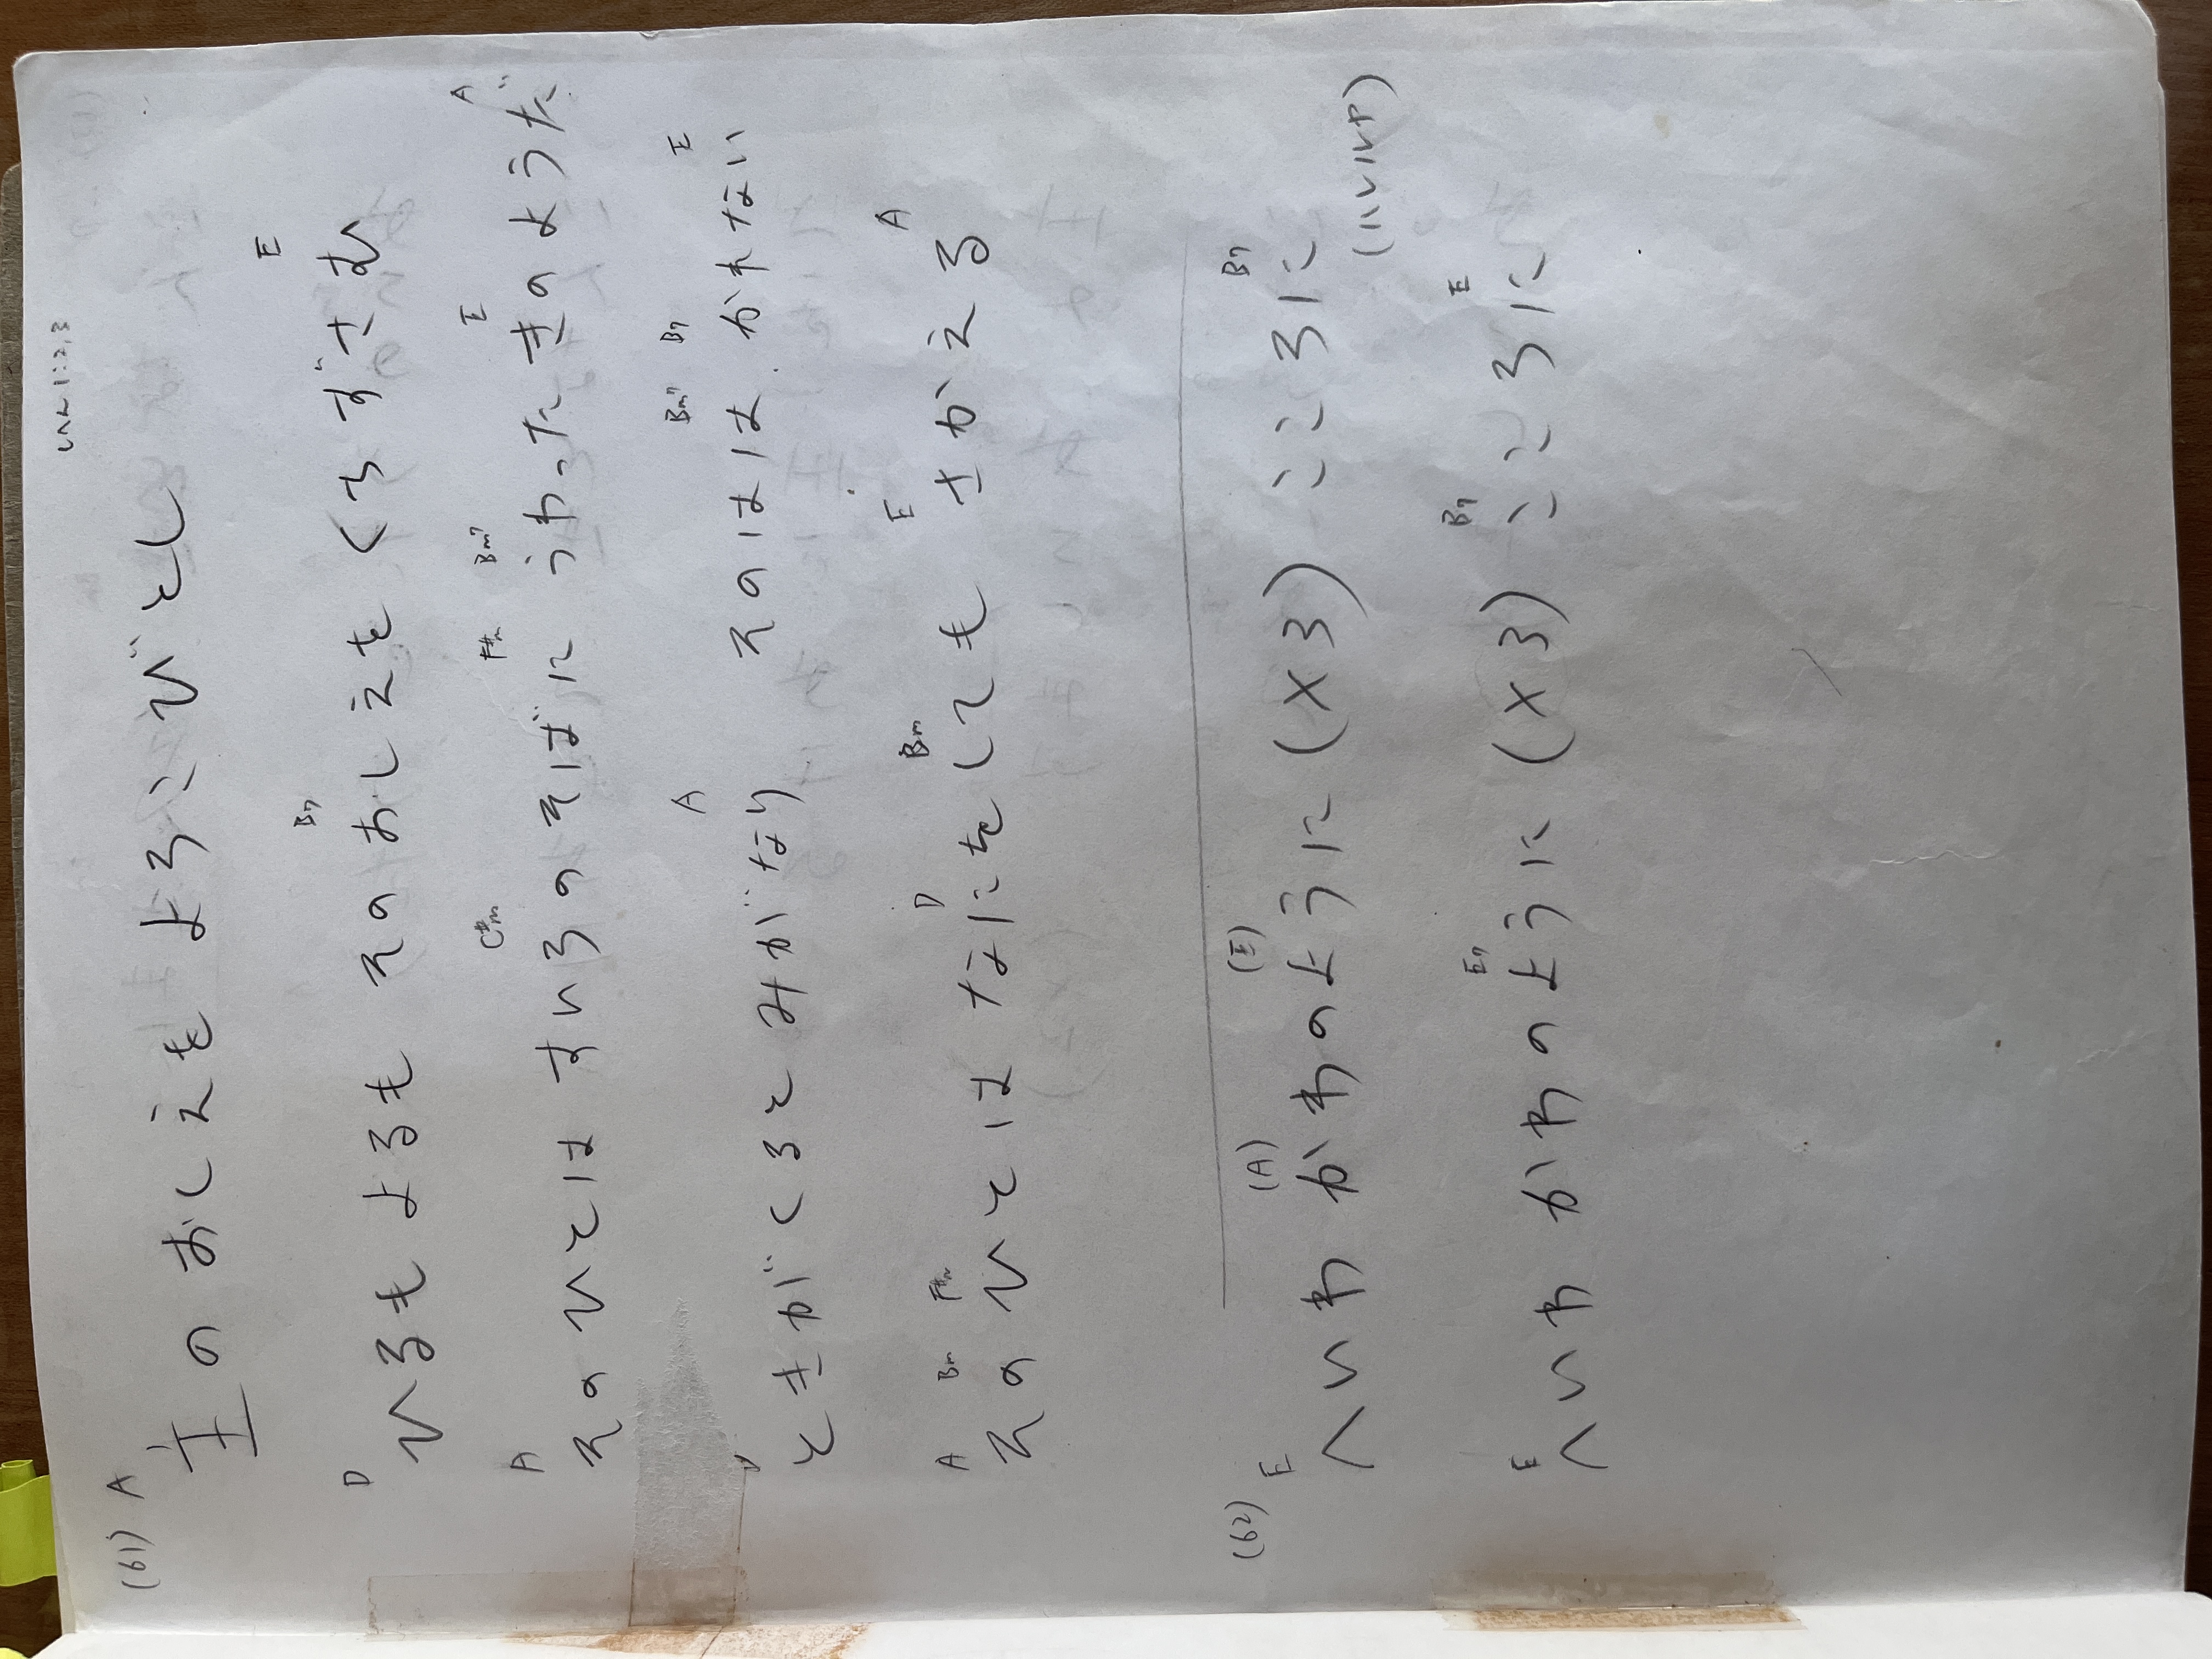 しへん 1:2,3
(61) A
主のおしえを よろこびとし
D B7 E
ひるもよるも そのおしえを くちずさむ
A C#m F#m Bm7 E A
そのひとは すいろのそばに うわったきのようだ
A Bm7 B7 E
ときがくるとみがなり そのはは かれない
A Bm F#m D Bm E A
そのひとは なにをしても さかえる
(62) E (A) (E) B7
へいわ かわのように (x3) こころに
(ハレルヤ)
E E7 B7 E
へいわ かわのように (x3) こころに